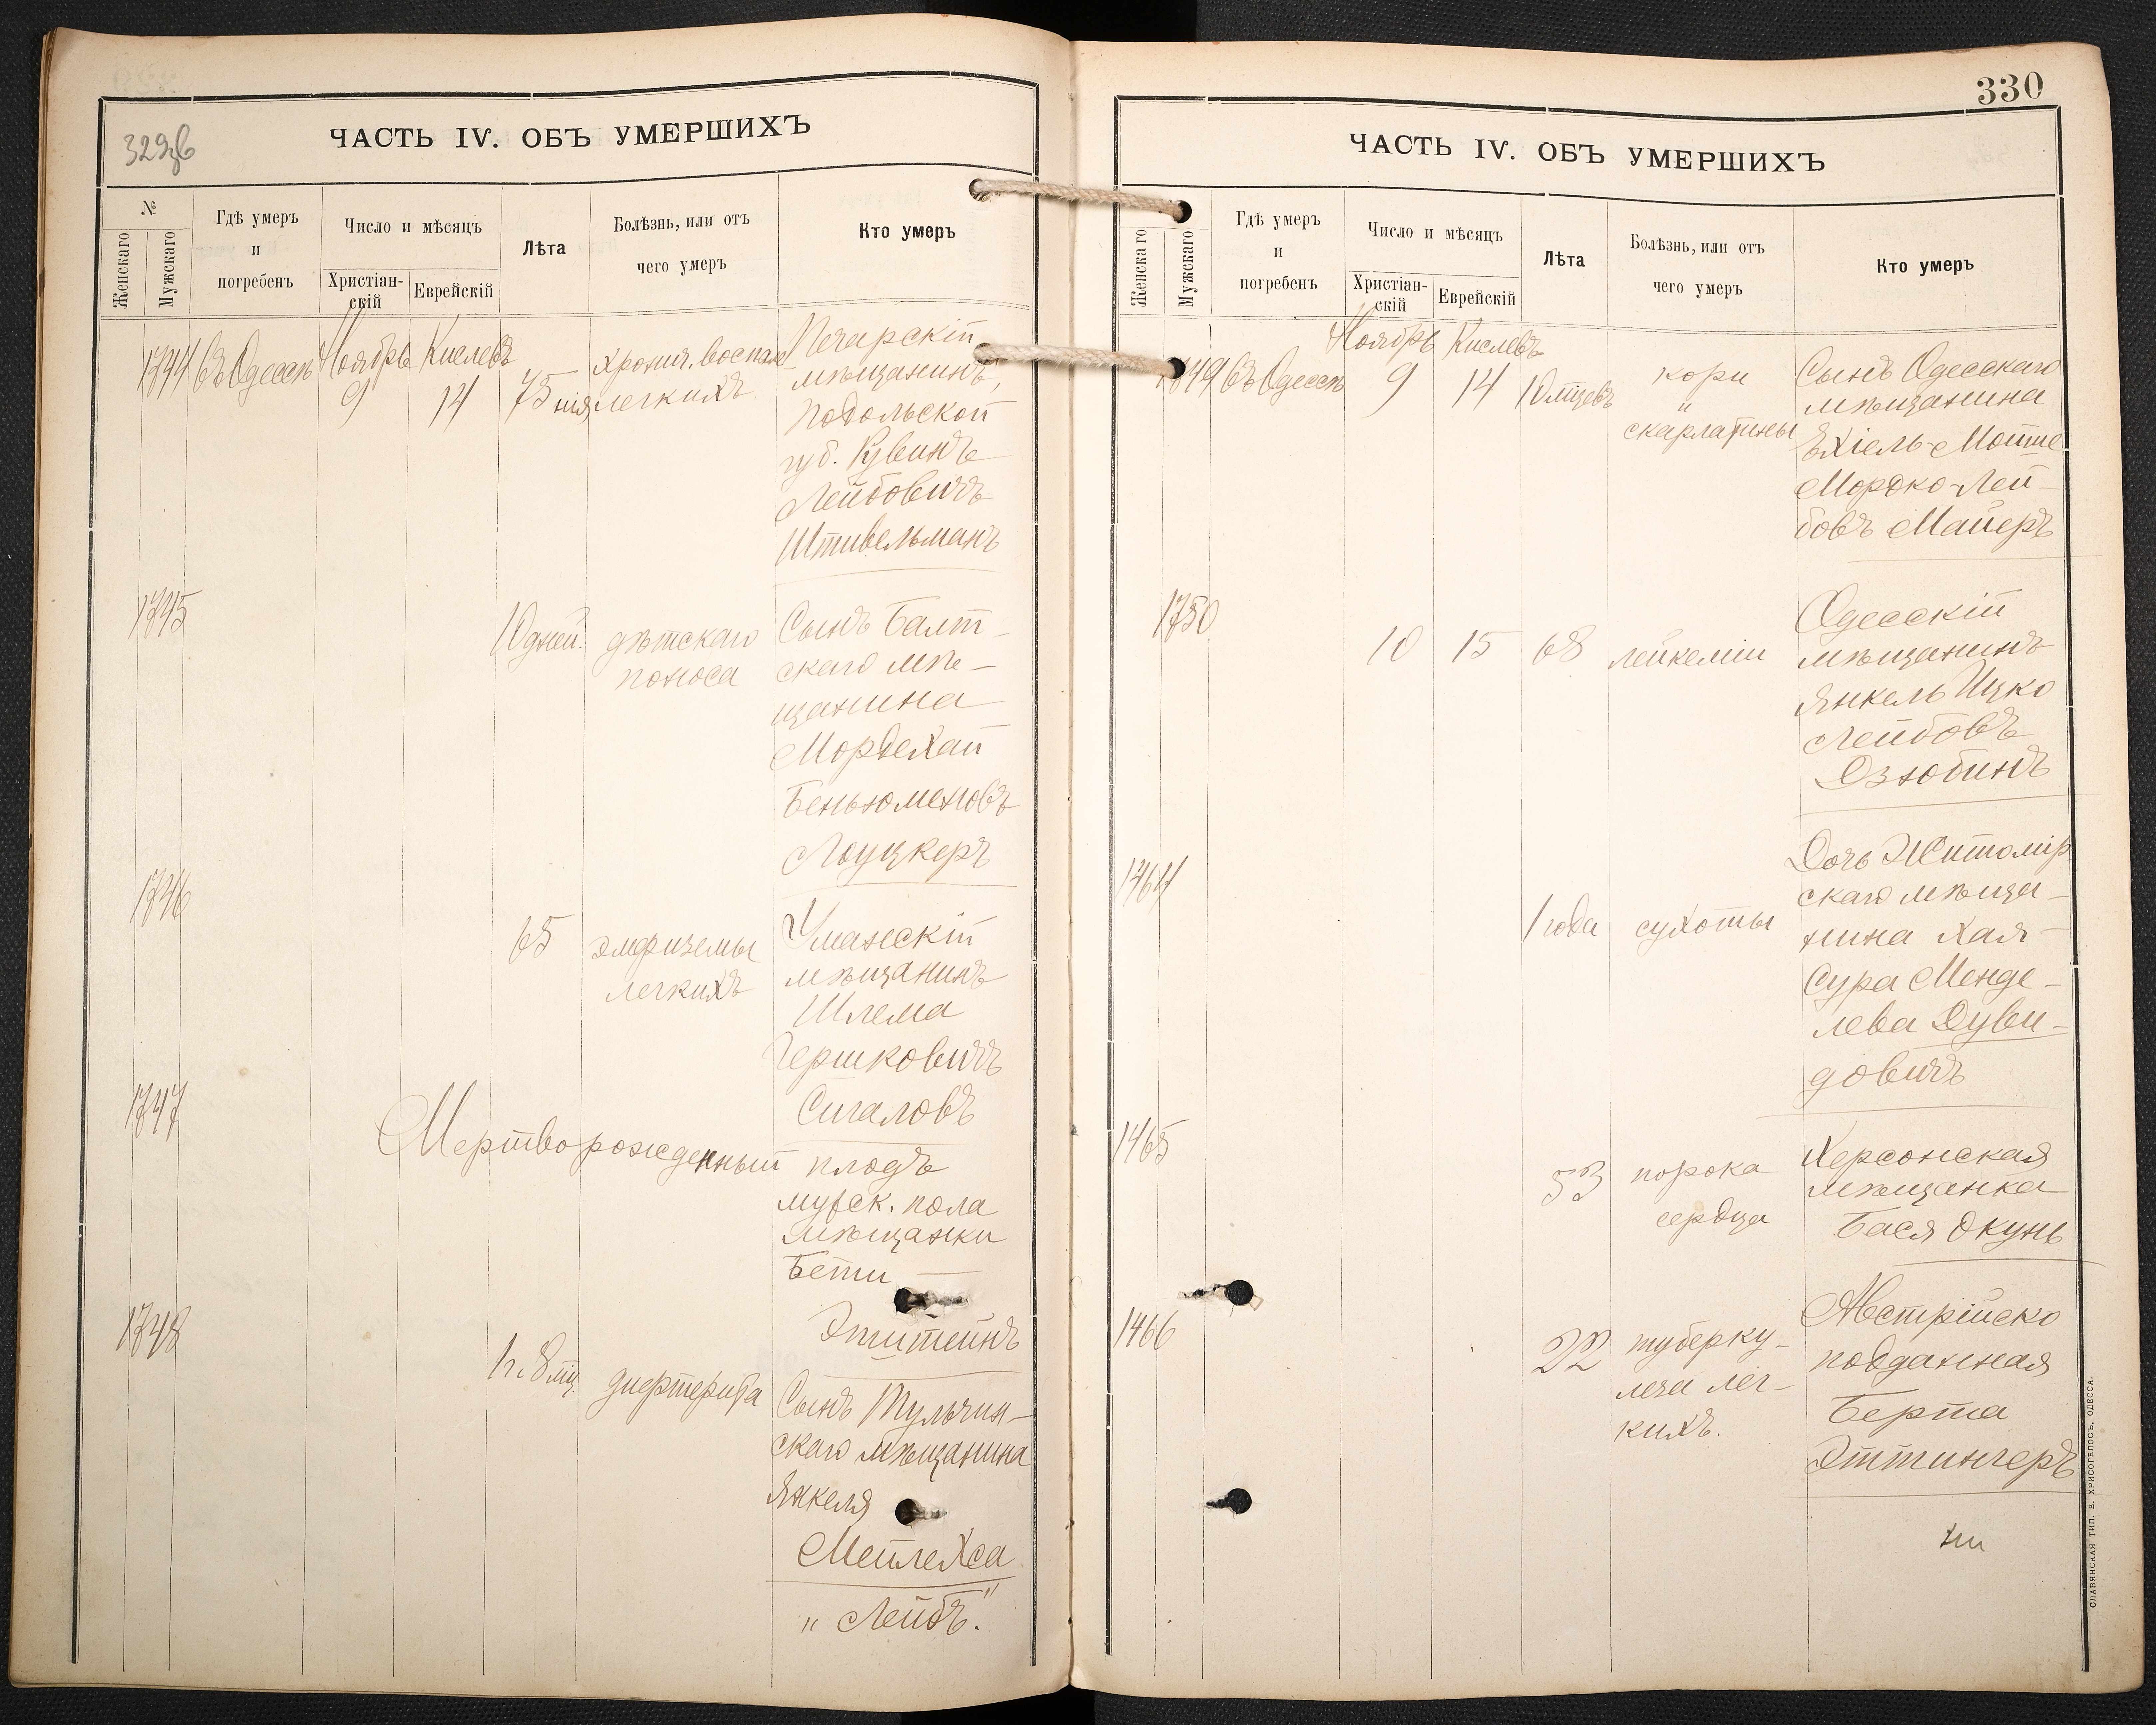 329об
ЧАСТЬ IV. ОБЪ УМЕРШИХЪ
№
Женскаго
Мужскаго
Гдѣ умеръ
и
погребенъ
Число и мѣсяцъ
Христіан-
скій
Еврейскій
Лѣта
Болѣзнь, или отъ
чего умеръ
Кто умеръ
1744 въ Одессѣ Ноябрь Кислевъ
9 14 75
хронич. воспале
нія легкихъ
Печарскій
мѣщанинъ,
Подольской
губ. Рувинъ
Лейбовичъ
Штивельманъ
1745
10 дней.
дѣтскаго
поноса
Сынъ Балт-
скаго мѣ-
щанина
Мордехай
Беньюменовъ
Лоуцкеръ
1746
65
эмфиземы
легкихъ
Уманскій
мѣщанинъ
Шлема
Гершковичъ
Сигаловъ
1747
Мертворожденный плодъ
мужск. пола
мѣщанки
Бети
Эпштейнъ
1748
1 г. 8 мц.
дифтерита
Сынъ Тульчин-
скаго мѣщанина
Янкеля
Мейлехса
„Лейбъ".
330
ЧАСТЬ IV. ОБЪ УМЕРШИХЪ
Женскаго
Мужскаго
Гдѣ умеръ
и
погребенъ
Число и мѣсяцъ
Христіан-
скій
Еврейскій
Лѣта
Болѣзнь, или отъ
чего умеръ
Кто умеръ
Ноябрь Кислевъ
1749 въ Одессѣ 9 14 10 мцевъ
кори
и
скарлатины
Сынъ Одесскаго
мѣщанина
Ехіель-Мотше
Мордко-Лей-
бовъ Майеръ
1750
10 15 68 лейкеміи
Одесскій
мѣщанинъ
Янкель Ицко
Лейбовъ
Дзюбинъ
1464
1 года сухоты
Дочь Житомір
скаго мѣща-
нина Хая-
Сура Менде-
лева Дуви-
довичъ
1465
53
порока
сердца
Херсонская
мѣщанка
Бася Окунь
1466
22
туберку-
леза лег-
кихъ.
Австрійско
подданная
Берта
Эттингеръ
СЛАВЯНСКАЯ ТИП. Е. ХРИСОГЕЛОСЪ, ОДЕССА.